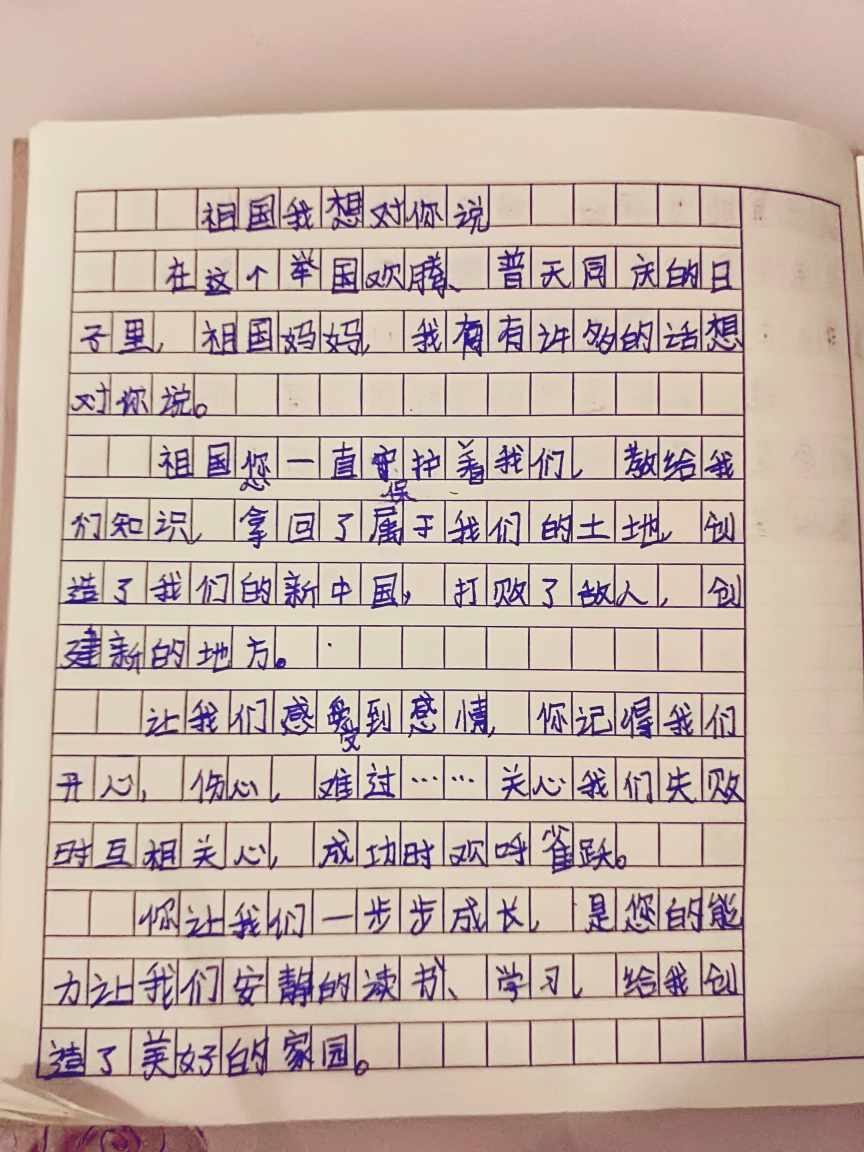 祖国我想对你说
在这个举国欢腾、普天同庆的日
子里，祖国妈妈，我有有许多的话想
对你说。
祖国您一直守护着我们，教给我
保
们知识，拿回了属于我们的土地，创
造了我们的新中国，打败了敌人，创
建新的地方。
让我们感爱到感情，你记得我们
受
开心，伤心，难过……关心我们失败
时互相关心，成功时欢呼雀跃。
你让我们一步步成长，是您的能
力让我们安静的读书、学习，给我创
造了美好的家园。